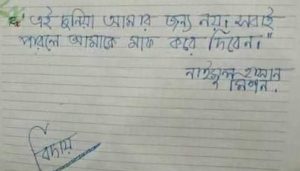 "এই দুনিয়া আমার জন্য নয়। সবাই
পারলে আমাকে মাফ করে দিবেন।"
নাইমুল হাসান
মিশন.
বিদায়